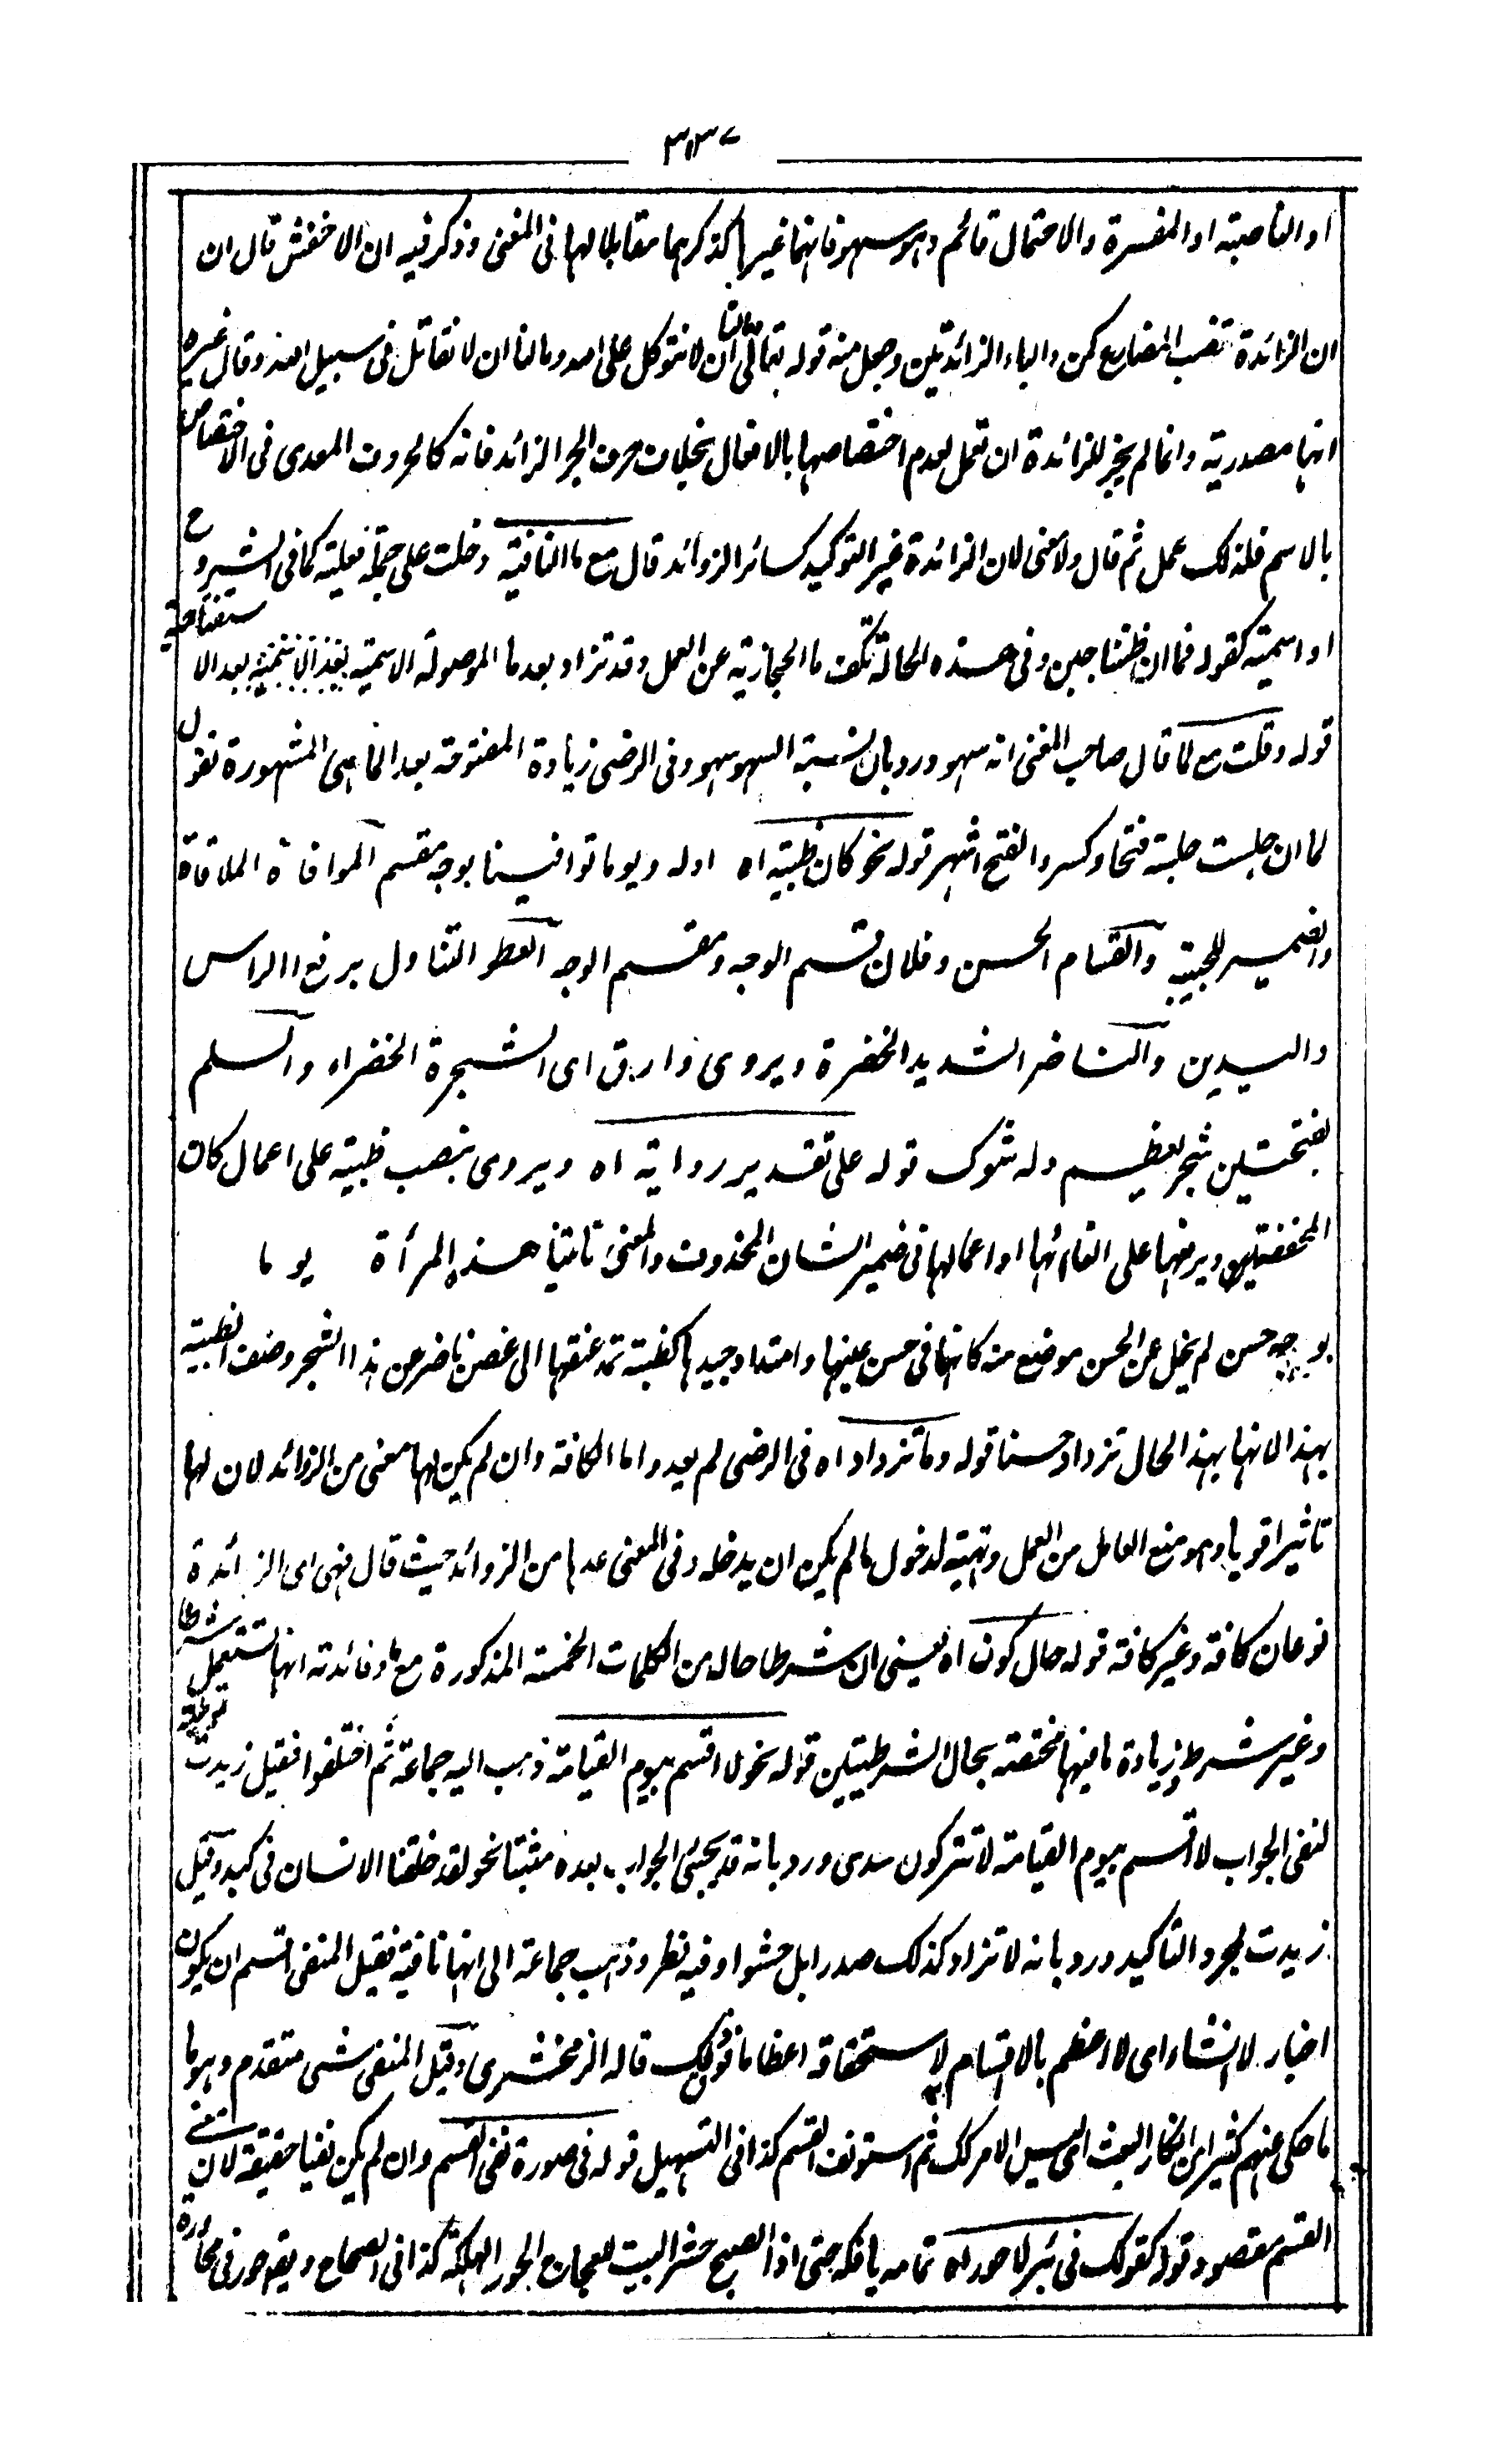 ٣٣٧
او الناصبة او المفسرة والاحتمال قائم وهو سهو فانهما غيرها كذكرهما مقابلا لها فى المغنى وذكر فيه ان الاخفش قال ان
ان الزائدة تنصب المضارع كمن والباء الزائدتين وجعل منه قوله تعالى ومالنا ان لا نتوكل على الله ومالنا ان لا نقاتل فى سبيل الله وقال غيره
انها مصدرية وانما لم يجز للزائدة ان تعمل لعدم اختصاصها بالافعال بخلاف حرف الجر الزائد فانه كالحروف المعدى فى الاختصاص
بالاسم فلذلك عمل ثم قال ولا معنى لان الزائدة غير التوكيد كسائر الزوائد قال مع ما النافية دخلت على جملة فعلية كما فى الشروح
او اسمية كقوله فما ان طبنا جبن وفى هذه الحالة تكف ما الحجازية عن العمل وقد تزاد بعد ما الموصولة الاسمية بعد الا ستفتاحية
قوله وقلت مع لما قال صاحب المغنى انه سهو ورد بان نسبة السهو سهو وفى الرضى زيادة المفتوحة بعد لما هى المشهورة تقول
لما ان جلست جلست فتحا وكسرا والفتح اشهر قوله نحو كان ظبية اه اوله ويوما توافينا بوجه مقسم الموافاة الملاقاة
والضمير للحبيبة والقسام الحسن وفلان قسيم الوجه ومقسم الوجه العطو التناول برفع الراس
واليدين والناضر الشديد الخضرة ويروى وارق اى الشجرة الخضراء والسلم
بفتحتين شجر عظيم وله شوك قوله على تقدير رواية اه ويروى بنصب ظبية على اعمال كان
المخففة ويرفعها على الغائها او اعمالها فى ضمير الشان المحذوف والمعنى تاتينا هذه المرأة يوما
بوجه حسن لم يخل عن الحسن موضع منه كانها فى حسن عينها وامتداد جيدها كظبية تمد عنقها الى غصن ناضر من هذا الشجر وصف الظبية
بهذا لانها بهذا الحال تزداد حسنا قوله وما تزداد اه فى الرضى لم يعدوا ما الكافة وان لم يكن لها معنى من الزوائد لان لها
تاثيرا قويا وهو منع العامل من العمل وتهيئته لدخول ما لم يكن ان يدخله وفى المغنى عدها من الزوائد حيث قال فهى اى الزائدة
نوعان كافة وغير كافة قوله حال كون اه يعنى ان شرطا حال من الكلمات الخمسة المذكورة مع ما وفائدته انها تستعمل شرطا
وغير شرط وزيادة ما فيها مختصة بحال الشرطيتين قوله نحو لا اقسم بيوم القيامة ذهب اليه جماعة ثم اختلفوا فقيل زيدت توطئة
لنفى الجواب لا اقسم بيوم القيامة لا تتركون سدى ورد بانه قد يجئ الجواب بعده مثبتا نحو لقد خلقنا الانسان فى كبد وقيل
زيدت لمجرد التاكيد ورد بانه لا تزاد كذلك صدرا بل حشوا وفيه نظر وذهب جماعة الى انها نافية فقيل المنفى اقسم ان يكون
اخبار لا انشاء اى لا اعظم بالاقسام به لاستحقاقه اعظاما فوق ذلك قاله الزمخشرى وقيل المنفى شىء متقدم وهو ما
ما حكى عنهم كثيرا من انكار البعث اى ليس الامر كذلك ثم استونف القسم كذا فى التسهيل قوله فى صورة نفى القسم وان لم يكن نفيا حقيقة لان
القسم مقصود قوله كقولك فى بئر لا حور اه تمامه بافكه حتى اذا الصبح حشر البيت للعجاج الحور الهلكة كذا فى الصحاح ويقع حور فى محاورة